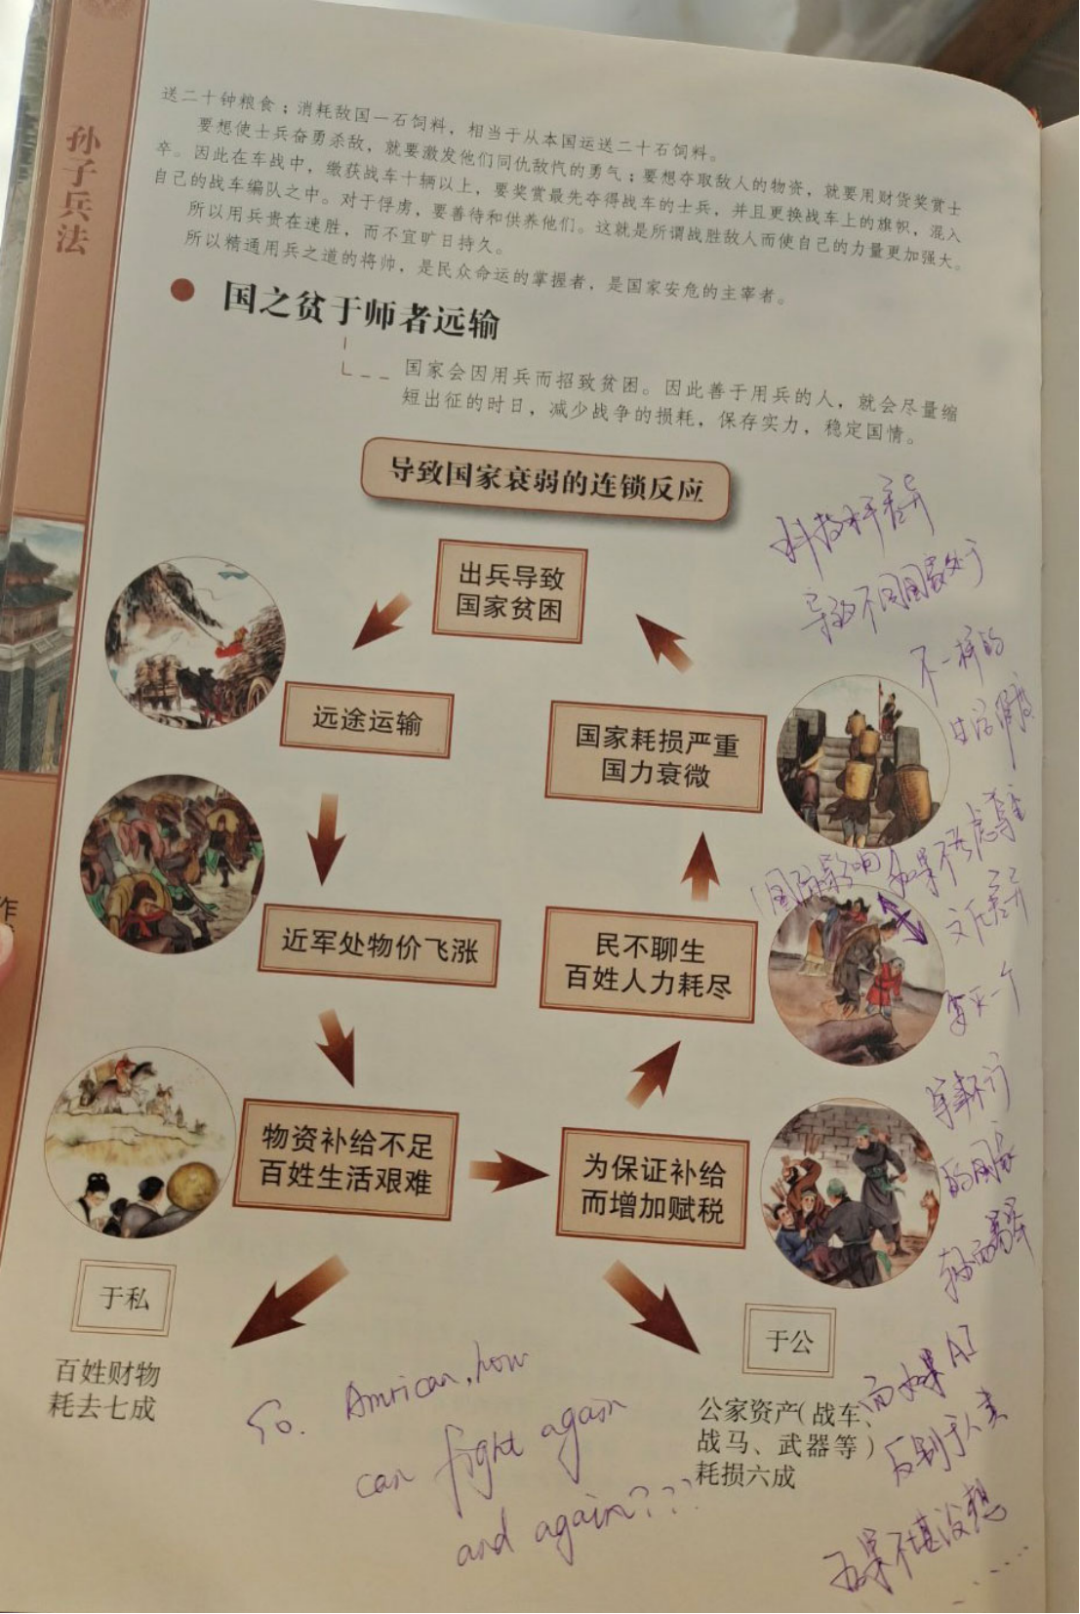 孙子兵法
送二十钟粮食；消耗敌国一石饲料，相当于从本国运送二十石饲料。
要想使士兵奋勇杀敌，就要激发他们同仇敌忾的勇气；要想夺取敌人的物资，就要用财货奖赏士
卒。因此在车战中，缴获战车十辆以上，要奖赏最先夺得战车的士兵，并且更换战车上的旗帜，混入
自己的战车编队之中。对于俘虏，要善待和供养他们。这就是所谓战胜敌人而使自己的力量更加强大。
所以用兵贵在速胜，而不宜旷日持久。
所以精通用兵之道的将帅，是民众命运的掌握者，是国家安危的主宰者。
国之贫于师者远输
国家会因用兵而招致贫困。因此善于用兵的人，就会尽量缩
短出征的时日，减少战争的损耗，保存实力，稳定国情。
导致国家衰弱的连锁反应
出兵导致
国家贫困
远途运输
近军处物价飞涨
物资补给不足
百姓生活艰难
为保证补给
而增加赋税
民不聊生
百姓人力耗尽
国家耗损严重
国力衰微
于私
百姓财物
耗去七成
于公
公家资产（战车、
战马、武器等）
耗损六成
科技水平差异
导致不同国家处于
不一样的
生活
国际影响 如果不考虑
文化差异
灭一个
的国家
而如果AI
反制于人类
后果不堪设想
......
So. Amrican, how
can fight again
and again???
作